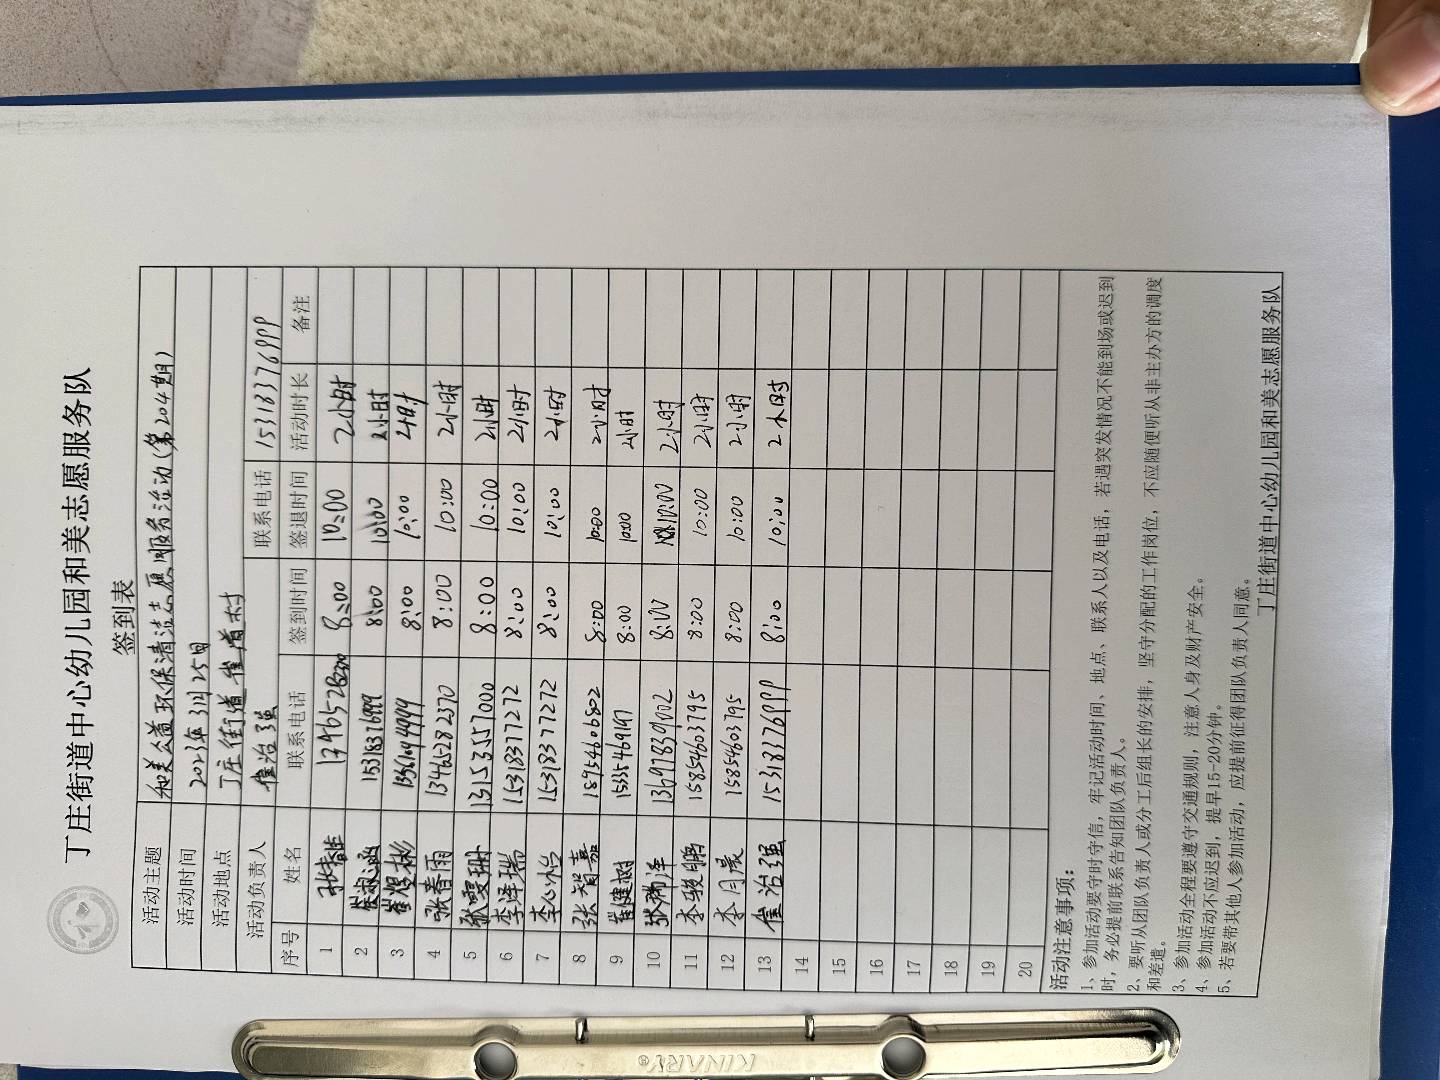 丁庄街道中心幼儿园和美志愿服务队
签到表
活动主题 和美公益环保清洁志愿服务活动(第204期)
活动时间 2023年3月25日
活动地点 丁庄街道崔道村
活动负责人 崔治强 联系电话 15318376999
序号 姓名 联系电话 签到时间 签退时间 活动时长 备注
1 8:00 10:00 2小时
2 崔淑涵 15318376999 8:00 10:00 2小时
3 崔煜彬 8:00 10:00 2小时
4 张春雨 13465282370 8:00 10:00 2小时
5 张雯珊 13153557000 8:00 10:00 2小时
6 李泽瑞 15318377272 8:00 10:00 2小时
7 李心怡 15318377272 8:00 10:00 2小时
8 张智嘉 18954606802 8:00 10:00 2小时
9 崔健树 15335469197 8:00 10:00 2小时
10 8:00 10:00 2小时
11 李骏鹏 15854603795 8:00 10:00 2小时
12 李月晨 15854603795 8:00 10:00 2小时
13 崔治强 15318376999 8:00 10:00 2小时
14
15
16
17
18
19
20
活动注意事项：
1、参加活动要守时守信，牢记活动时间、地点、联系人以及电话，若遇突发情况不能到场或迟到
时，务必提前联系告知团队负责人。
2、要听从团队负责人或分工后组长的安排，坚守分配的工作岗位，不应随便听从非主办方的调度
和差遣。
3、参加活动全程要遵守交通规则，注意人身及财产安全。
4、参加活动不应迟到，提早15-20分钟。
5、若要带其他人参加活动，应提前征得团队负责人同意。
丁庄街道中心幼儿园和美志愿服务队
KINARY®